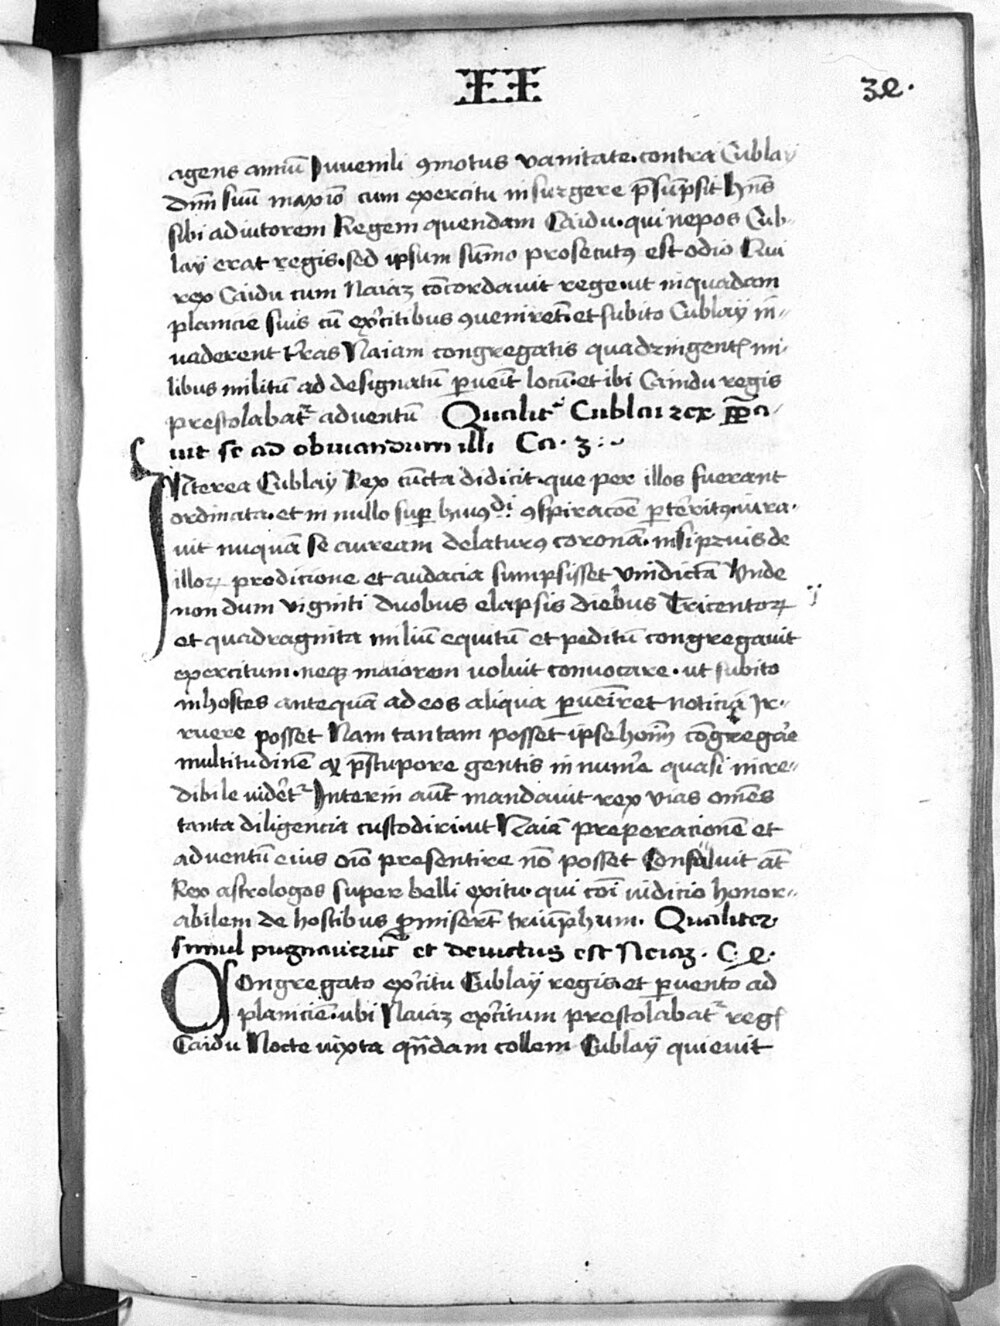 II 34.
agens annũ Iuvenili ꝯmotus vanitate. contra Cublay
dñm suũ maxiõ cum exercitu insurgere p̃sũpsit hñs
sibi adiutorem Regem quendam Caidu. qui nepos Cub-
laÿ erat regis. sed ipsum sũmo prosecutꝰ est odio Qui
rex Caidu cum Naiaz cõcordavit rege. ut in quadam
planicie suis cũ ex̃citibus ꝯveniret̃. et subito Cublaÿ in-
vaderent t̃ras Naiam congregatis quadringent̃ mi-
libus militũ ad designatũ ꝑveĩt locũ. et ibi Caindu regis
prestolabat̃ adventũ Qualit̃ Cublai rex p̃pa-
vit se ad obviandum illi Ca. 3.
INterea Cublay Rex cũcta didicit. que per illos fuerant
ordinata. et in nullo suꝑ huiꝰdi ꝯspiracõe ꝑt̃ritꝰ. iura-
vit nuquã se auream delaturꝰ coronã. nisi prius de
illoꝝ prodicione et audacia sumpsisset vindictã Unde
nondum viginti duobus elapsis diebus Tricentoꝝ
et quadraginta miliũ equitũ et peditũ congregavit
exercitum. neqꝫ maiorem voluit convocare. ut subito
in hostes antequã ad eos aliqua ꝑveĩret noticia Ir-
ruere posset Nam tantam posset ipse hoĩm cõgregare
multitudinẽ ꝙ p̃ stupore gentis innum̃e quasi incre-
dibile videret̃ Interim aut̃ mandavit rex vias om̃es
tanta diligencia custodiri. ut Naiã preperacionẽ et
adventũ eius oĩo presentire nõ posset Consuluit at̃
Rex astrologos super belli exitu. qui cõi iudicio honor-
abilem de hostibus ꝓmiserũt triũphum. Qualiter
simul pugnaverũt et devictus est Neiaz. C. 4.
COngregato ex̃citu Cublaÿ regis. et ꝑvento ad
planiciẽ. ubi Naiaz ex̃citum prestolabat̃ reg̃
Caidu Nocte iuxta quẽdam collem Cublaÿ quievit